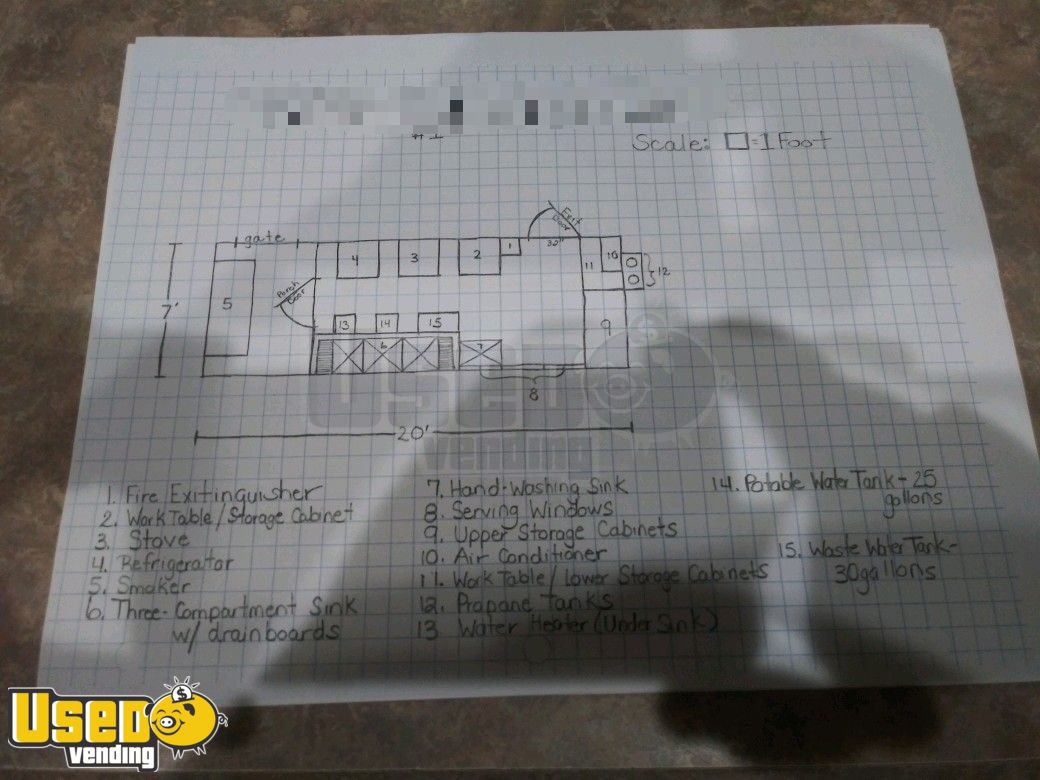 #1
Scale: □=1 Foot
gate
Exit
Door
32"
1
2
3
4
10
11
12
Porch
Door
5
7'
13
14
15
9
6
7
8
20'
1. Fire Exitinguisher
2. Work Table/Storage Cabinet
3. Stove
4. Refrigerator
5. Smoker
6. Three-Compartment Sink
w/ drainboards
7. Hand-Washing Sink
8. Serving Windows
9. Upper Storage Cabinets
10. Air Conditioner
11. Work Table/Lower Storage Cabinets
12. Propane Tanks
13 Water Heater (Under Sink)
14. Potable Water Tank - 25
gallons
15. Waste Water Tank-
30gallons
USED
vending
USED
vending